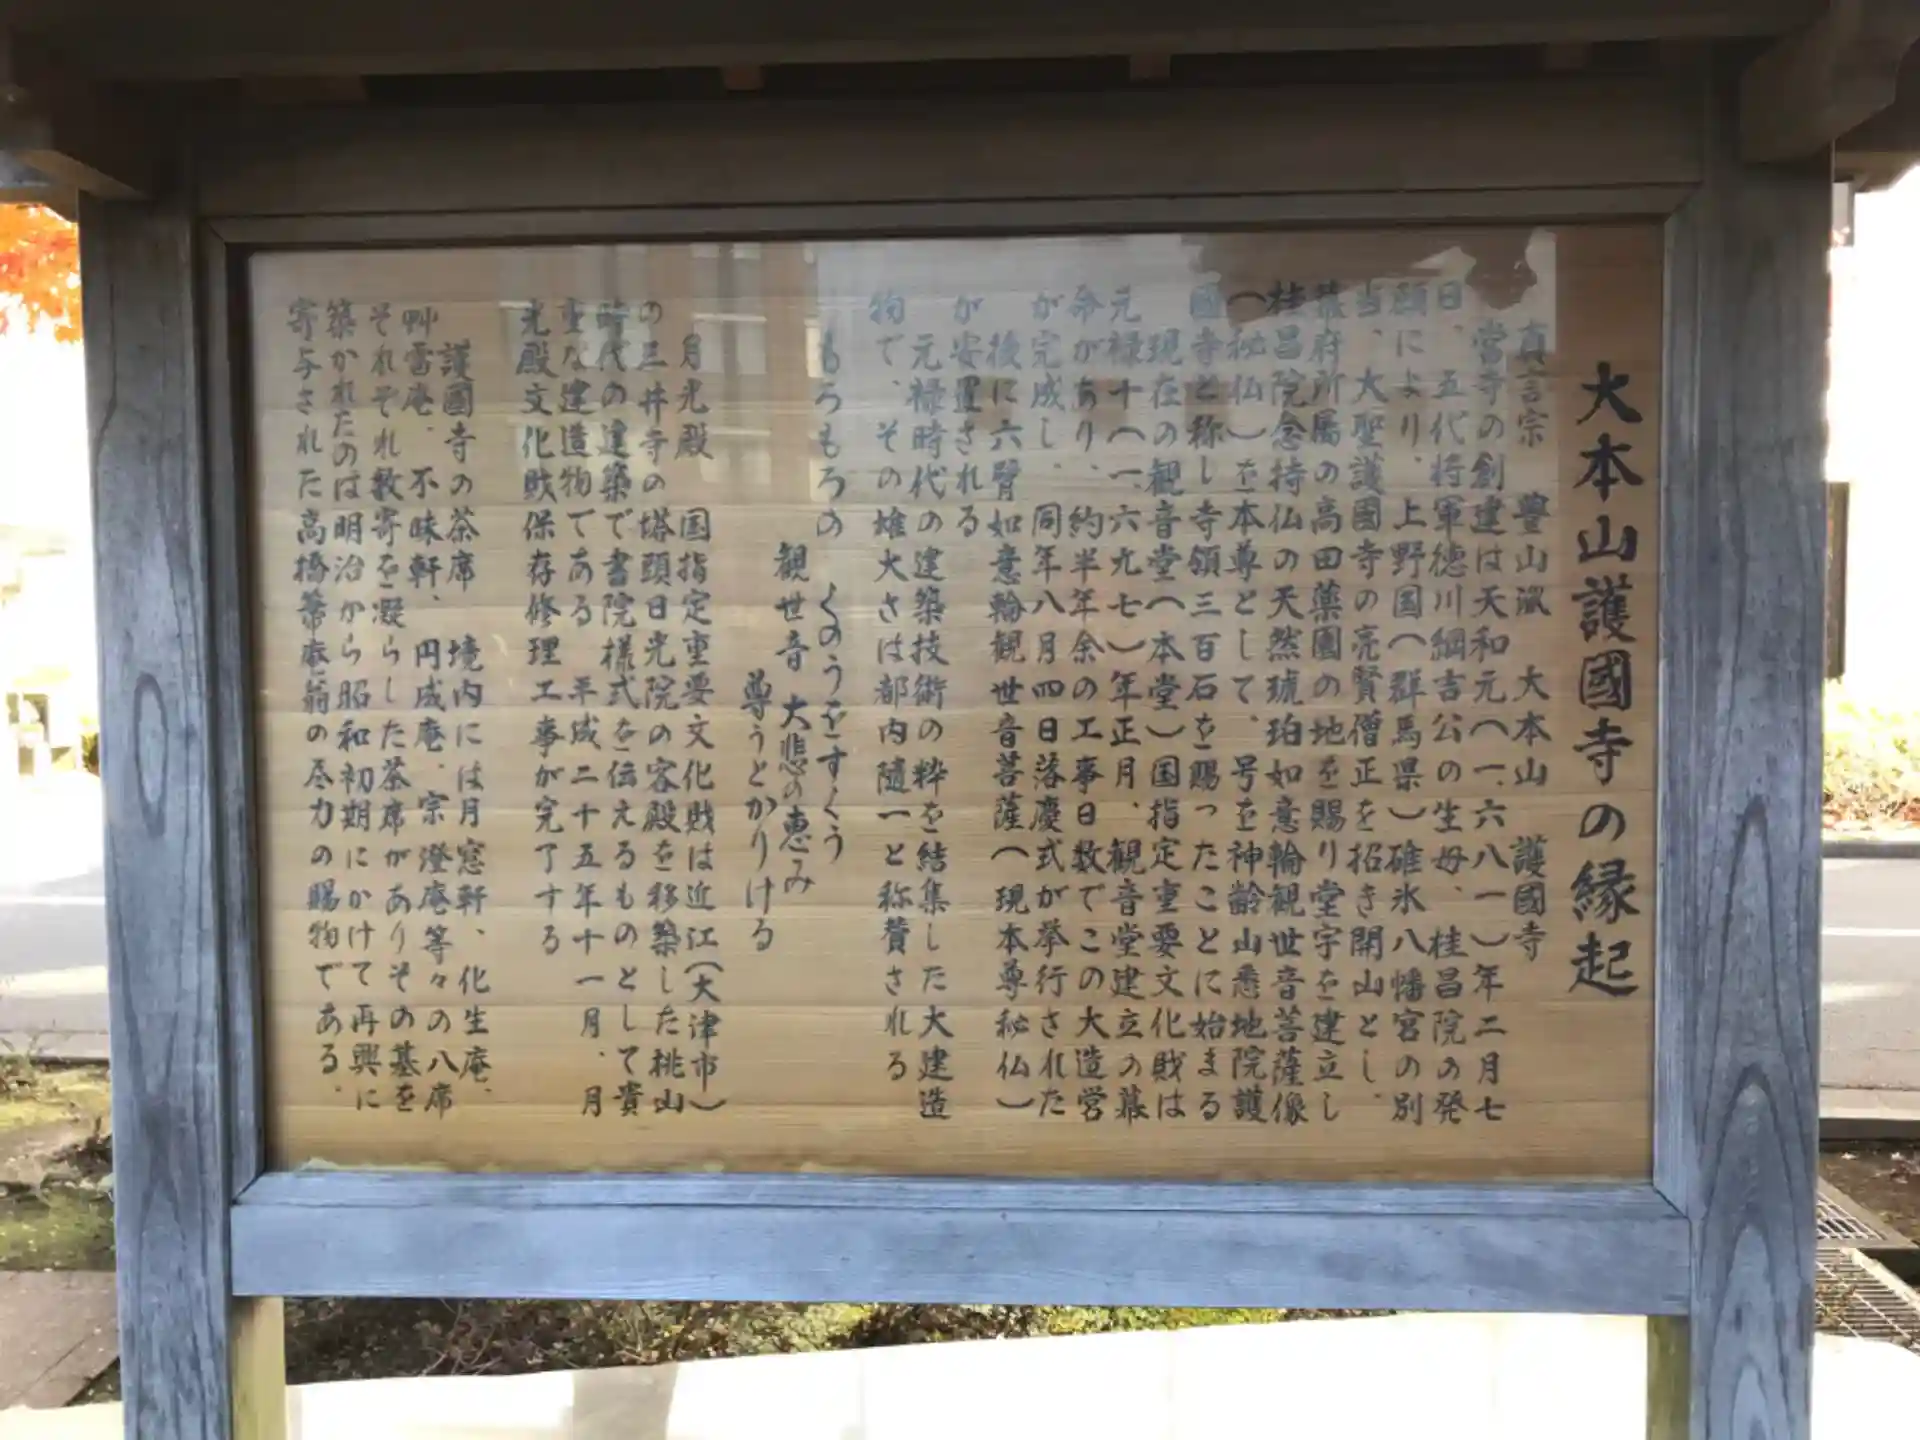 大本山護國寺の縁起
真言宗 豊山派 大本山 護國寺
當寺の創建は天和元(一、六八一)年二月七
日、五代将軍徳川綱吉公の生母、桂昌院の発
願により、上野国(群馬県)碓氷八幡宮の別
当、大聖護國寺の亮賢僧正を招き開山とし、
幕府所属の高田薬園の地を賜り堂宇を建立し
桂昌院念持仏の天然琥珀如意輪観世音菩薩像
(秘仏)を本尊として、号を神齢山悉地院護
國寺と称し寺領三百石を賜ったことに始まる
現在の観音堂(本堂)国指定重要文化財は
元禄十(一、六九七)年正月、観音堂建立の幕
命があり、約半年余の工事日数でこの大造営
が完成し、同年八月四日落慶式が挙行された
後に六臂如意輪観世音菩薩(現本尊秘仏)
が安置される
元禄時代の建築技術の粋を結集した大建造
物で、その雄大さは都内随一と称賛される
もろもろの くのうをすくう
観世音 大悲の恵み
尊うとかりける
月光殿 国指定重要文化財は近江(大津市)
の三井寺の塔頭日光院の客殿を移築した桃山
時代の建築で書院様式を伝えるものとして貴
重な建造物である 平成二十五年十一月、月
光殿文化財保存修理工事が完了する
護國寺の茶席 境内には月窓軒、化生庵、
艸雷庵、不昧軒、円成庵、宗澄庵等々の八席
それぞれ数寄を凝らした茶席がありその基を
築かれたのは明治から昭和初期にかけて再興に
寄与された高橋箒庵翁の尽力の賜物である.